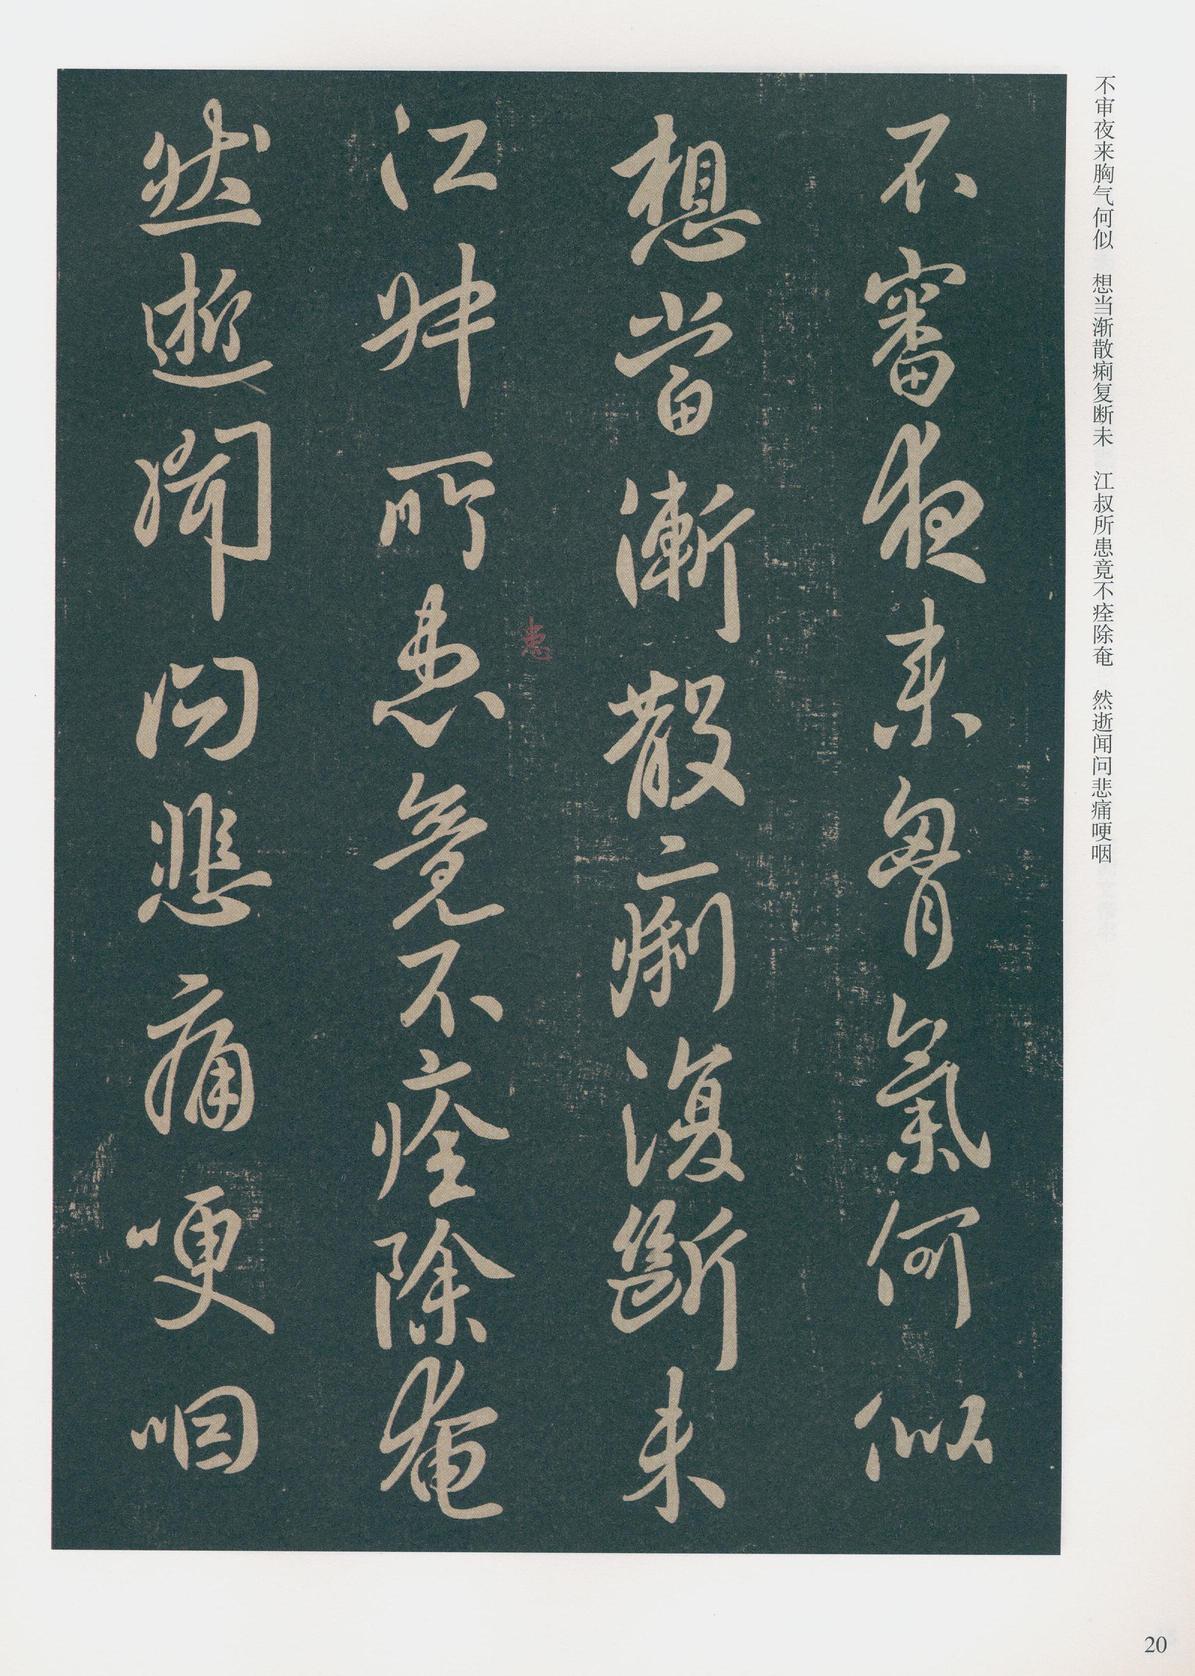 不審夜来胷氣何似
想當漸散痢復斷未
江叔所患竟不痊除奄
患
然逝聞問悲痛哽咽
不审夜来胸气何似 想当渐散痢复断未 江叔所患竟不痊除奄 然逝闻问悲痛哽咽
20